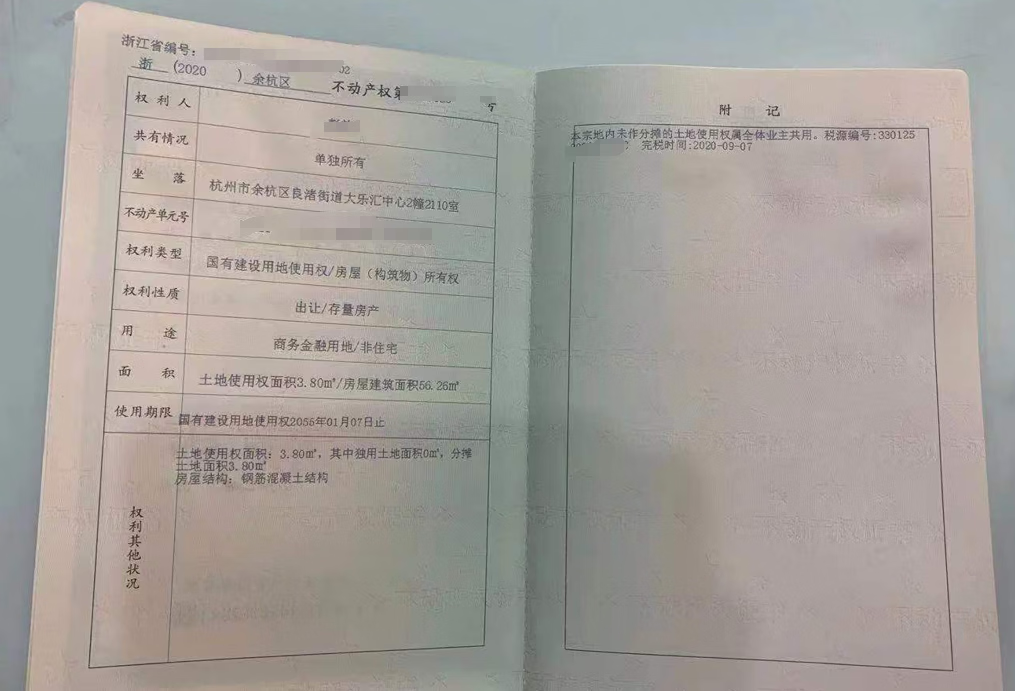 浙江省编号:
02
浙 (2020 ) 余杭区 不动产权第 号
权利人
共有情况 单独所有
坐落 杭州市余杭区良渚街道大乐汇中心2幢2110室
不动产单元号
权利类型 国有建设用地使用权/房屋(构筑物)所有权
权利性质 出让/存量房产
用途 商务金融用地/非住宅
面积 土地使用权面积3.80㎡/房屋建筑面积56.26㎡
使用期限 国有建设用地使用权2055年01月07日止
权利其他状况
土地使用权面积:3.80㎡,其中独用土地面积0㎡,分摊
土地面积3.80㎡
房屋结构:钢筋混凝土结构
附记
本宗地内未作分摊的土地使用权属全体业主共用。税源编号:330125
完税时间:2020-09-07